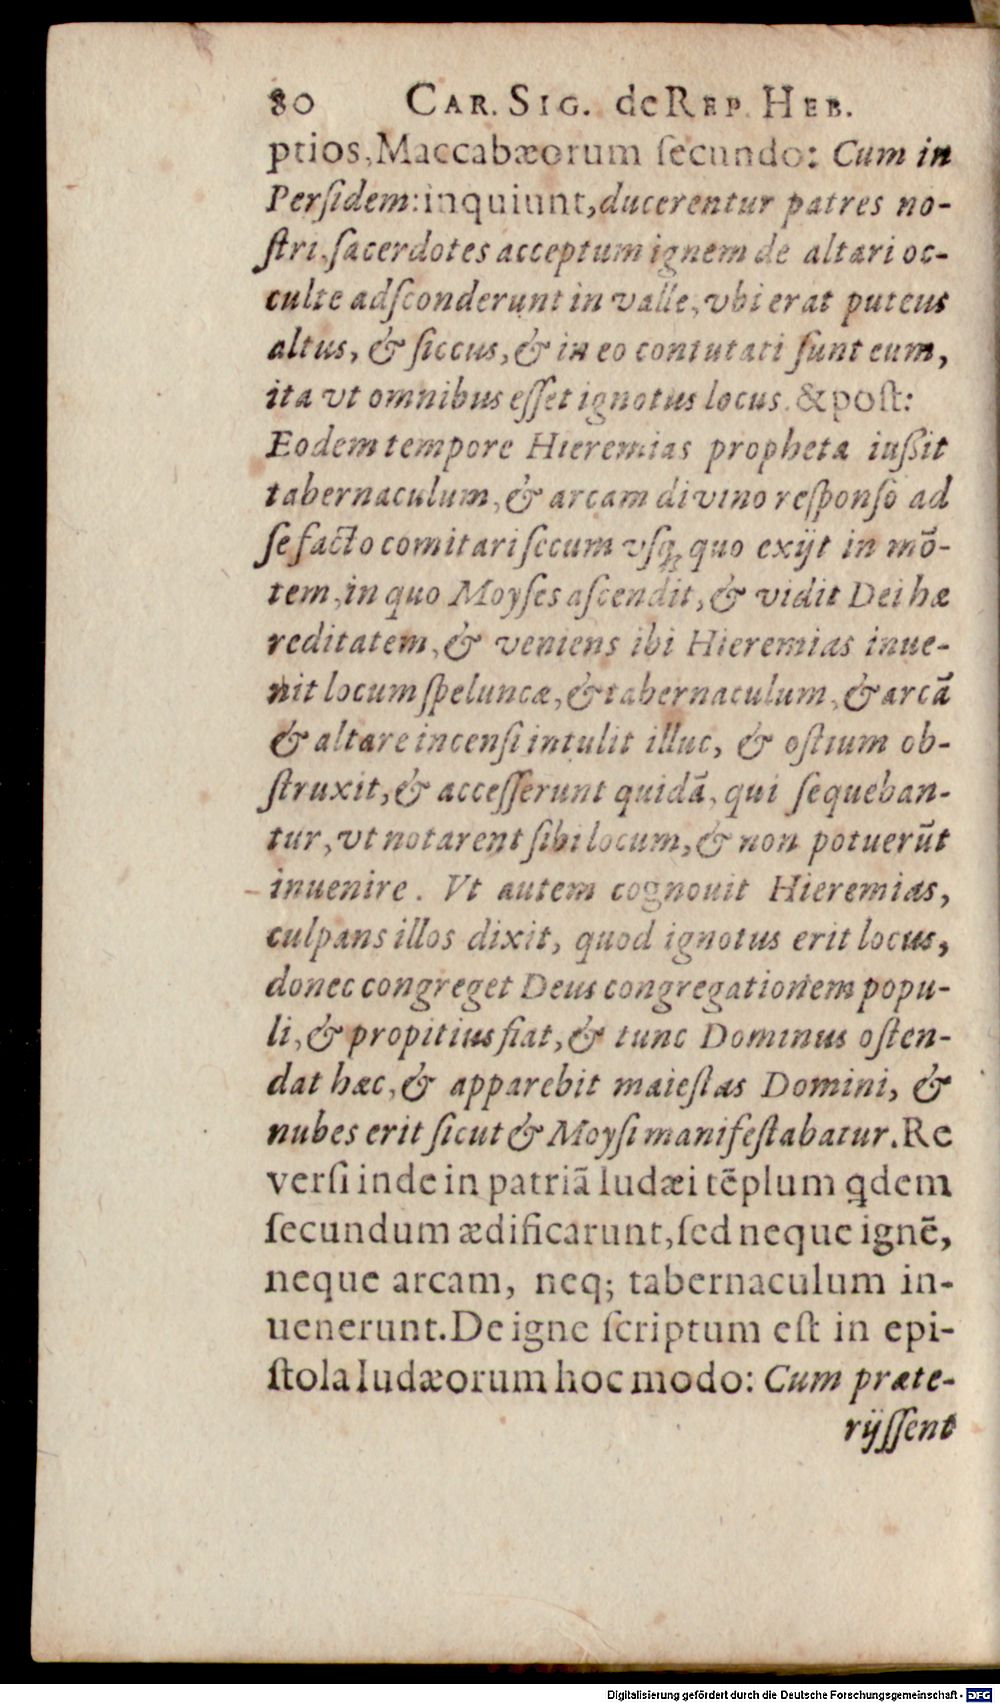 80 CAR. SIG. de REP. HEB.
ptios, Maccabæorum ſecundo: Cum in
Perſidem: inquiunt, ducerentur patres no-
ſtri, ſacerdotes acceptum ignem de altari oc-
culte adſconderunt in valle, vbi erat puteus
altus, & ſiccus, & in eo contutati ſunt eum,
ita vt omnibus eſſet ignotus locus. & poſt:
Eodem tempore Hieremias propheta iußit
tabernaculum, & arcam divino reſponſo ad
ſe facto comitari ſecum vſq; quo exijt in mõ-
tem, in quo Moyſes aſcendit, & vidit Dei hæ
reditatem, & veniens ibi Hieremias inue-
nit locum ſpeluncæ, & tabernaculum, & arcã
& altare incenſi intulit illuc, & oſtium ob-
ſtruxit, & acceſſerunt quidã, qui ſequeban-
tur, vt notarent ſibi locum, & non potuerũt
inuenire. Vt autem cognouit Hieremias,
culpans illos dixit, quod ignotus erit locus,
donec congreget Deus congregationem popu-
li, & propitius fiat, & tunc Dominus oſten-
dat hæc, & apparebit maieſtas Domini, &
nubes erit ſicut & Moyſi manifeſtabatur. Re
verſi inde in patriã Iudæi tẽplum qdem
ſecundum ædificarunt, ſed neque ignẽ,
neque arcam, neq; tabernaculum in-
uenerunt. De igne ſcriptum eſt in epi-
ſtola Iudæorum hoc modo: Cum præte-
rijſſent
Digitalisierung gefördert durch die Deutsche Forschungsgemeinschaft - DFG